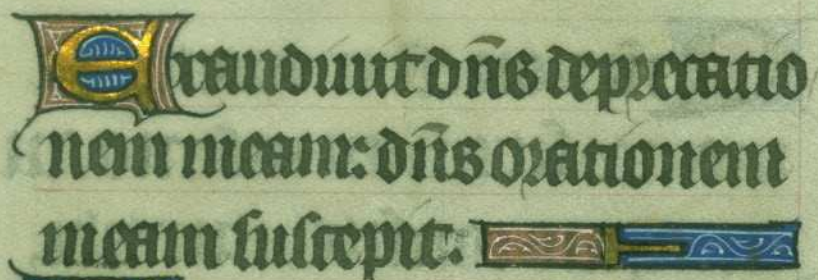 Exaudivit dn̄s deprecatio
nem meam: dn̄s orationem
meam suscepit.